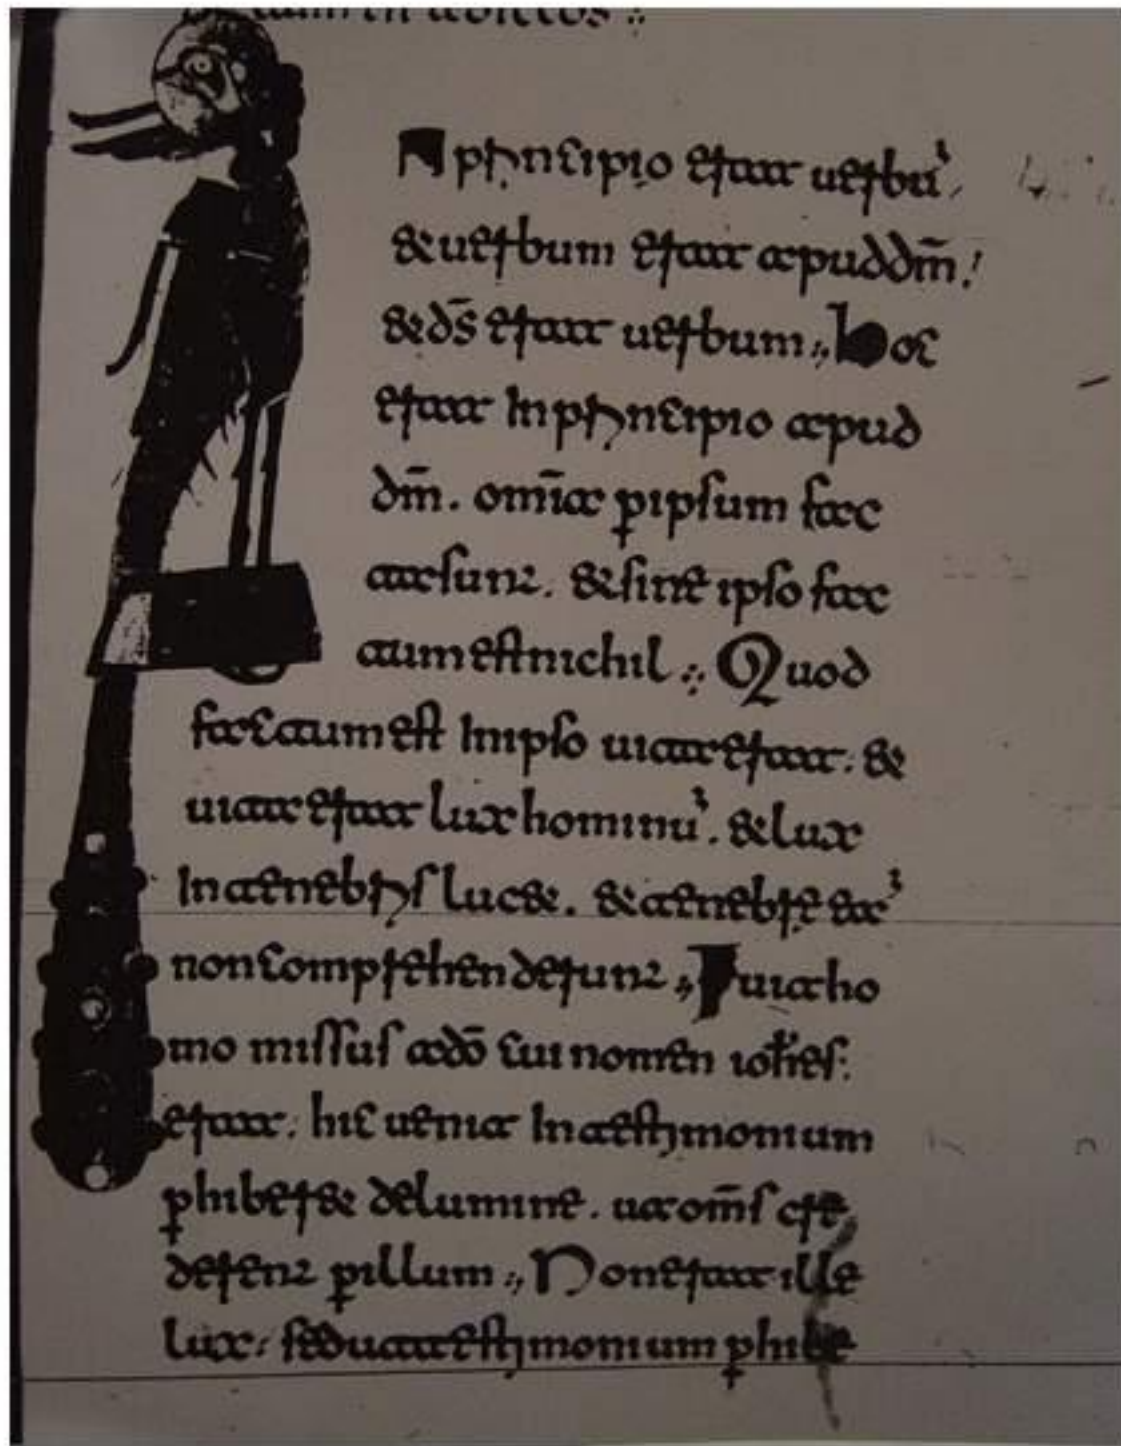 N principio erat uerbū,
& uerbum erat apud dm̄.
& ds̄ erat uerbum. hoc
erat In principio apud
dm̄. omīa ꝑ ipsum fac
ta sunt. & sine ipso fac
tum est nichil. Quod
factum est In ipso uita erat. &
uita erat lux hominū. & lux
In tenebris luc&. & tenebre ea
non comprehenderunt. Fuit ho
mo missus a dō cui nomen ioħes
erat. hic uenit In testimonium
ꝑhiber& de lumine. ut om̄s cre
derent ꝑ illum. Non erat ille
lux. sed ut testimonium ꝑhibe